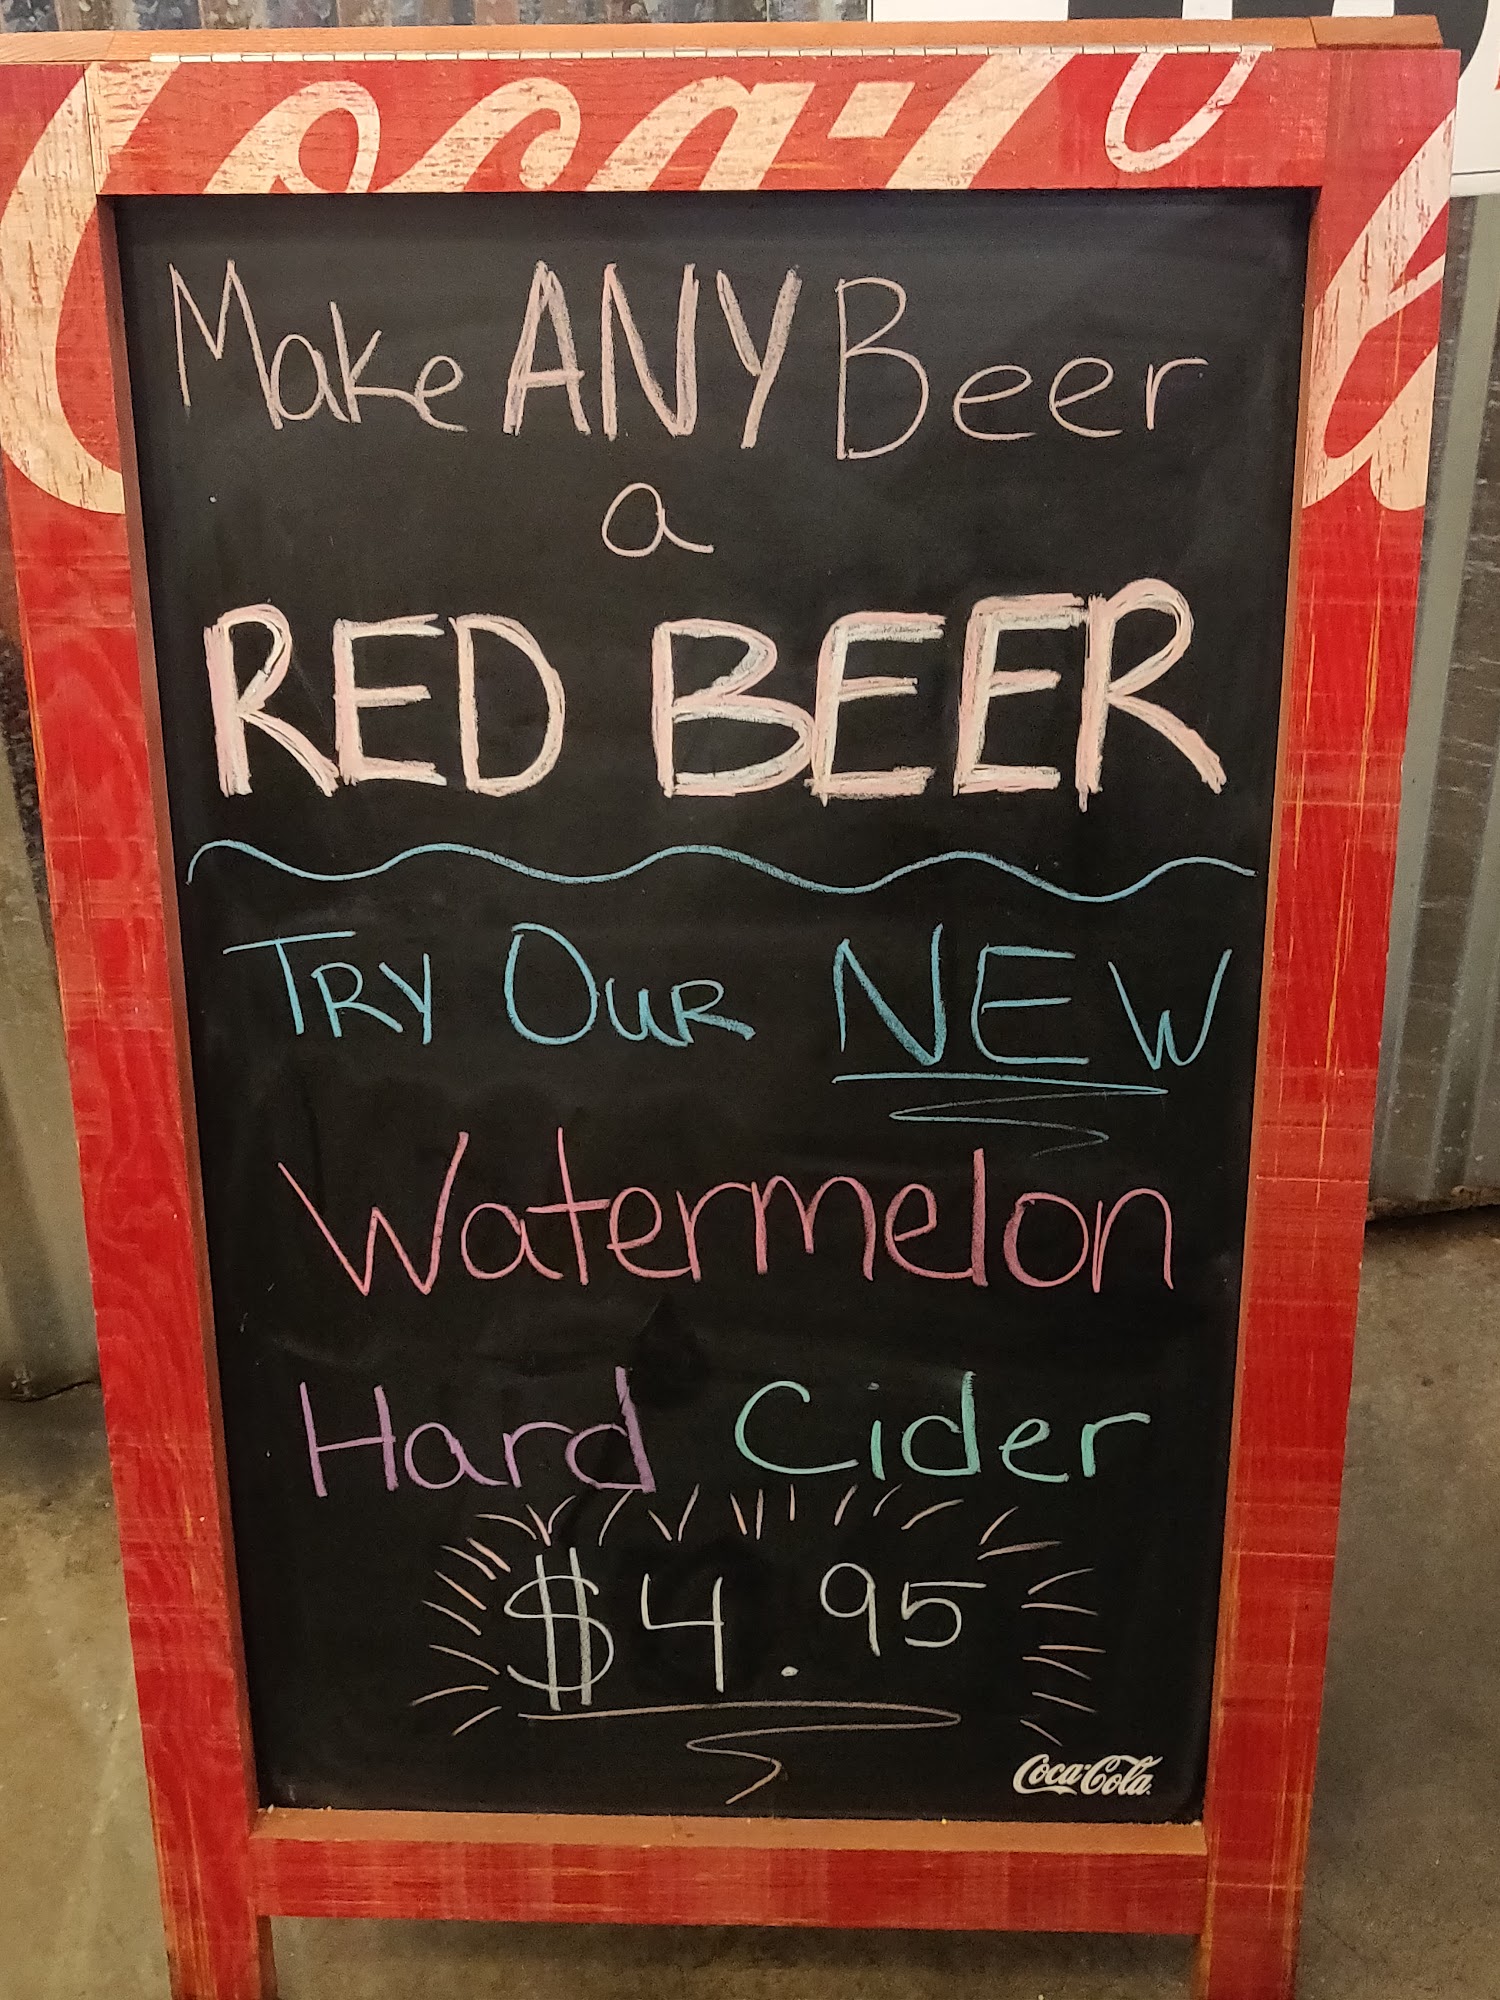 Coca-Cola
Make ANY Beer
a
RED BEER
TRY OUR NEW
Watermelon
Hard Cider
$4.95
Coca-Cola